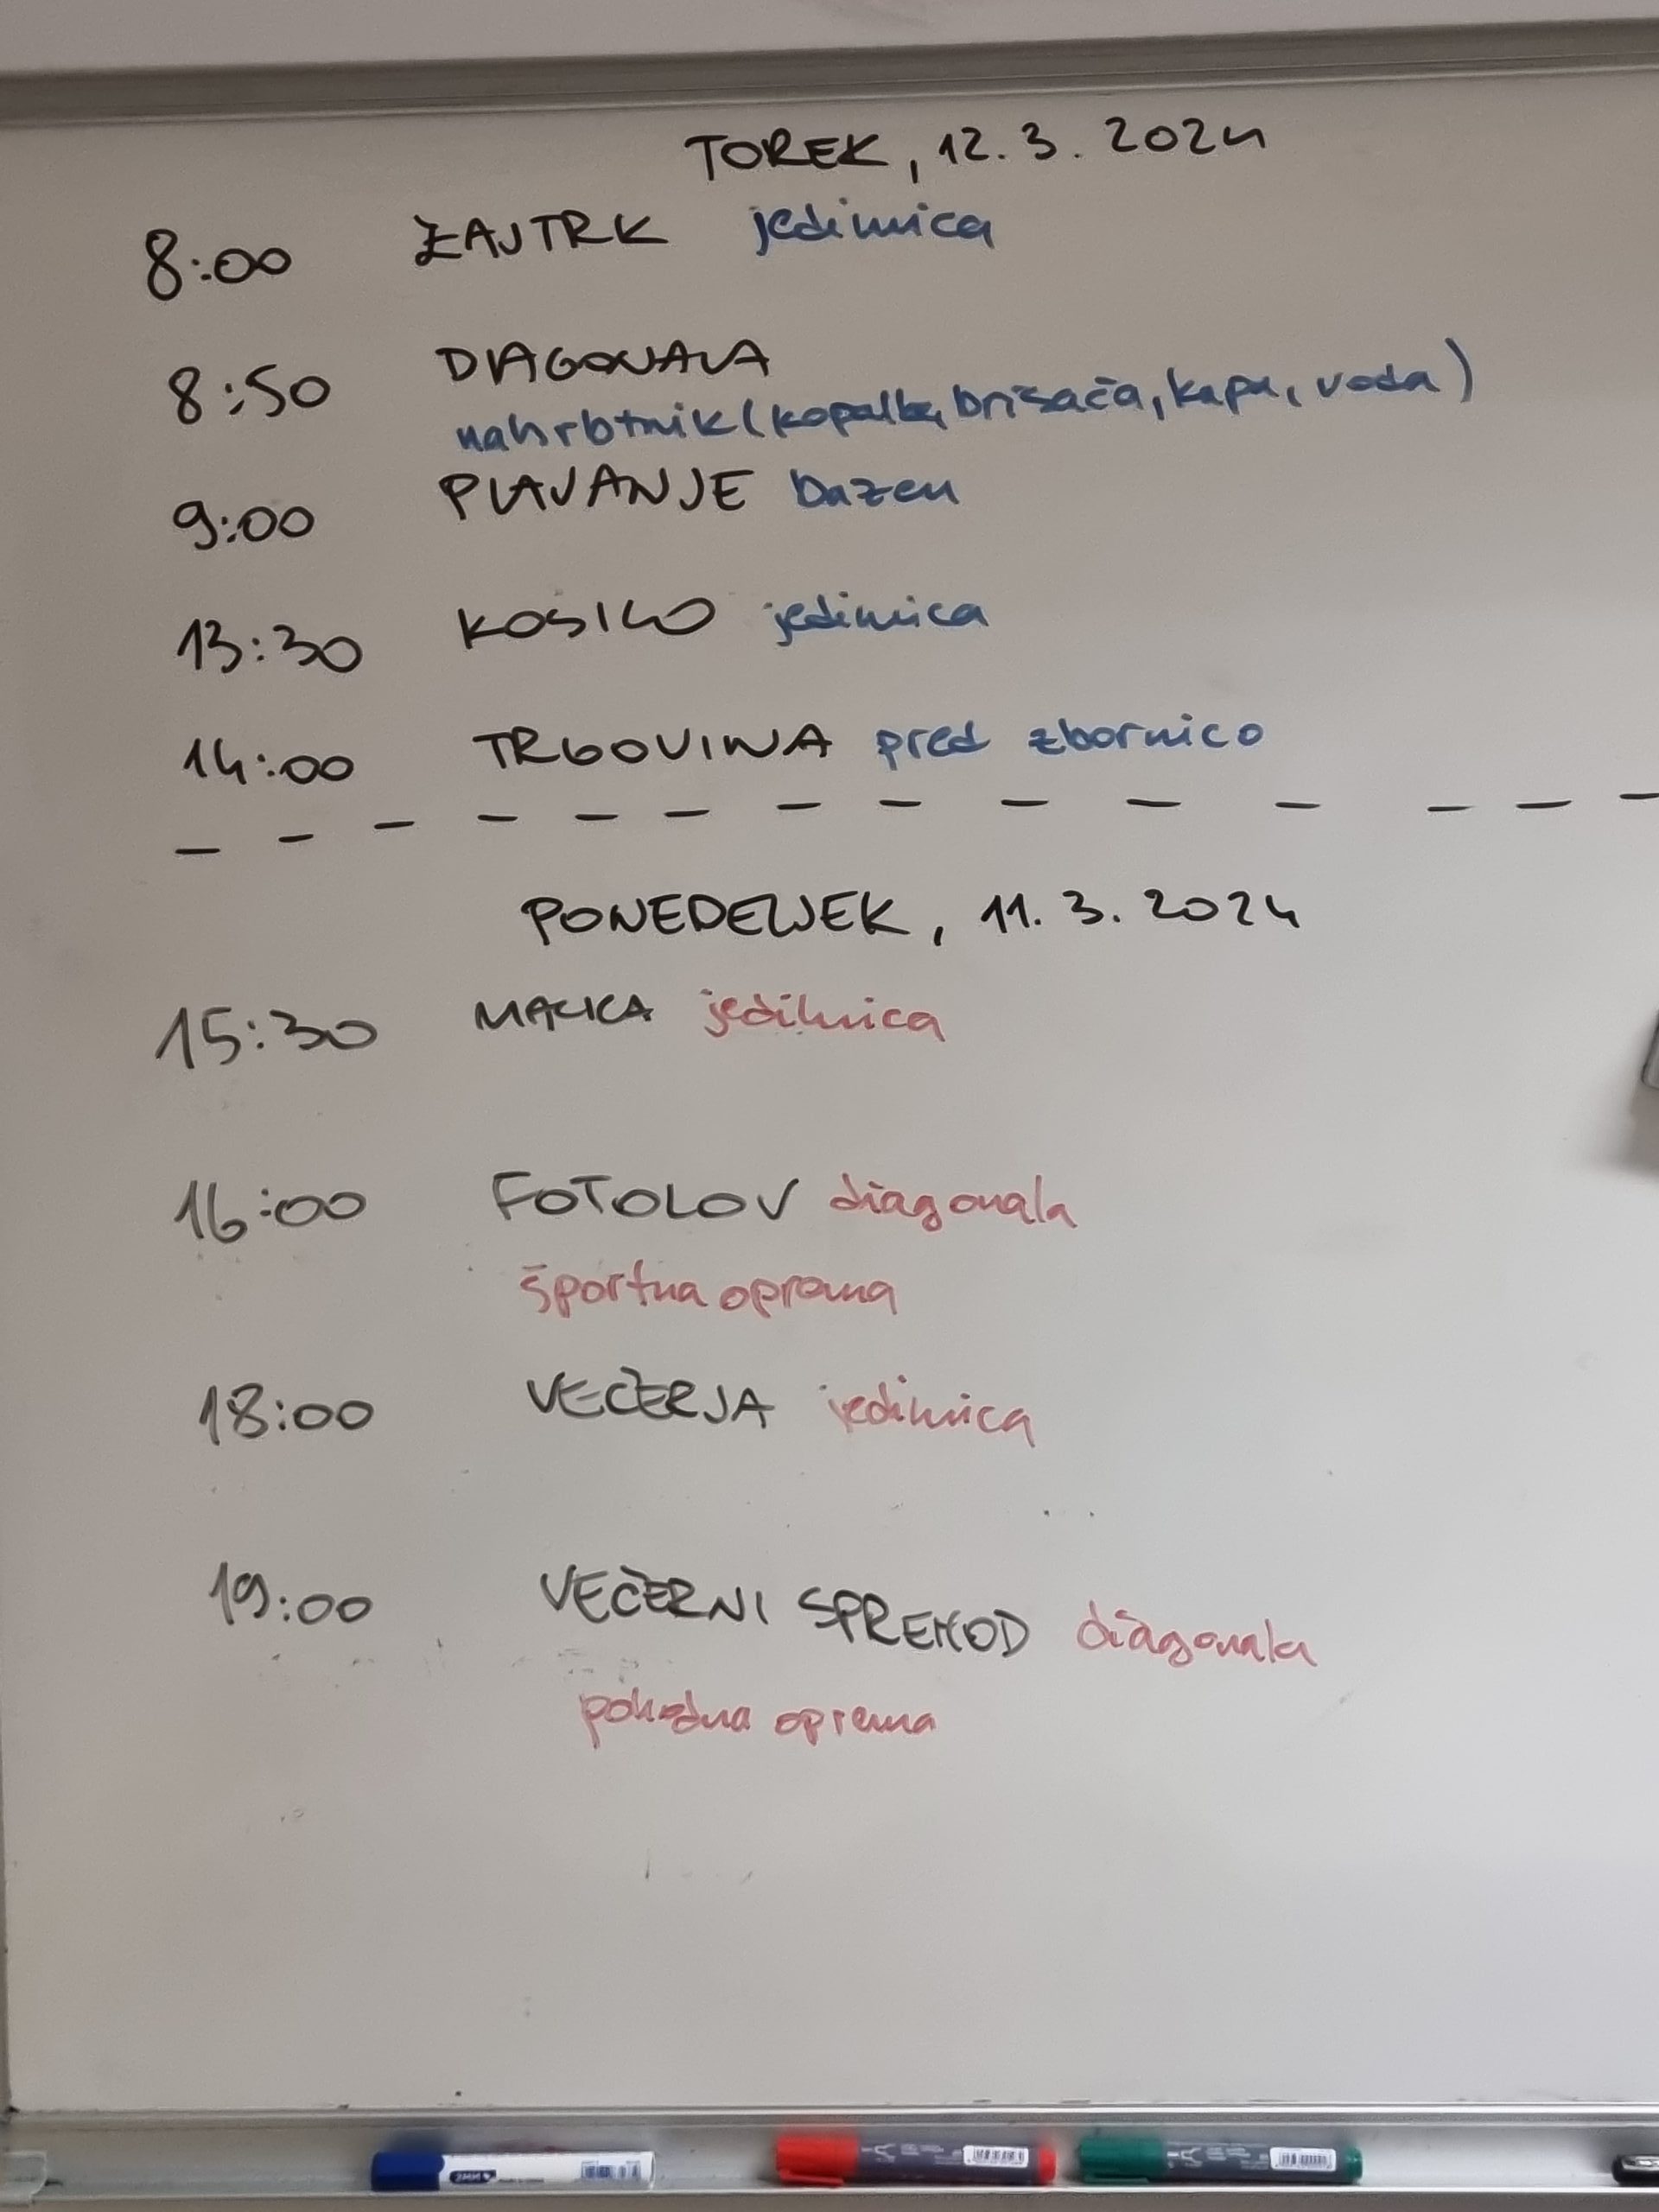 TOREK, 12.3.2024
8:00 ZAJTRK jedilnica
8:50 DIAGONALA
nahrbtnik (kopalke, brisača, kapa, voda)
9:00 PLAVANJE bazen
13:30 KOSILO jedilnica
14:00 TRGOVINA pred zbornico
PONEDELJEK, 11.3.2024
15:30 MALICA jedilnica
16:00 FOTOLOV diagonala
športna oprema
18:00 VEČERJA jedilnica
19:00 VEČERNI SPREHOD diagonala
pohodna oprema